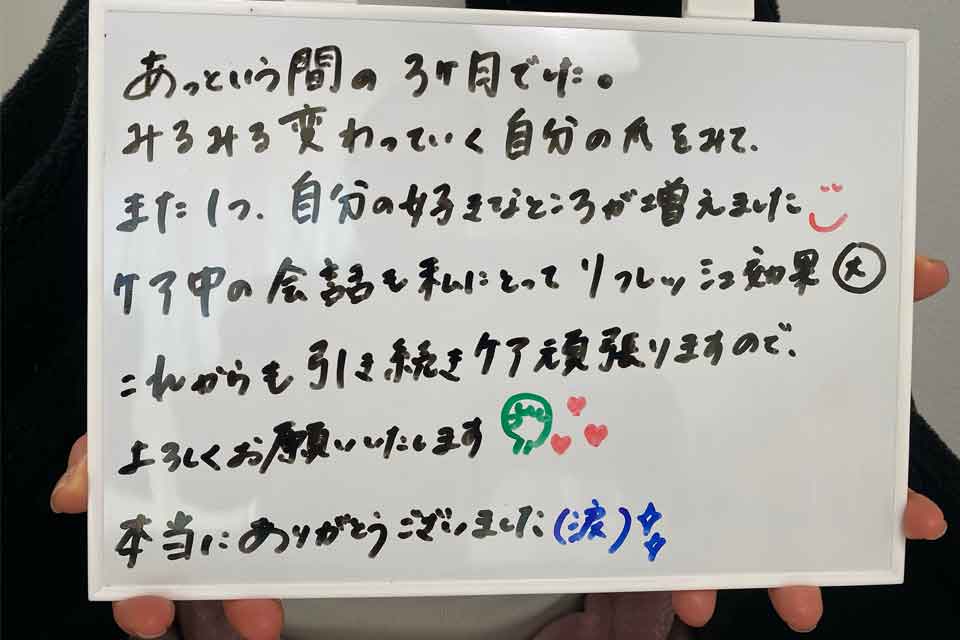 あっという間の3ヶ月でした。
みるみる変わっていく自分の爪をみて、
また1つ、自分の好きなところが増えました
ケア中の会話も私にとってリフレッシュ効果大
これからも引き続きケア頑張りますので、
よろしくお願いいたします
本当にありがとうございました(涙)